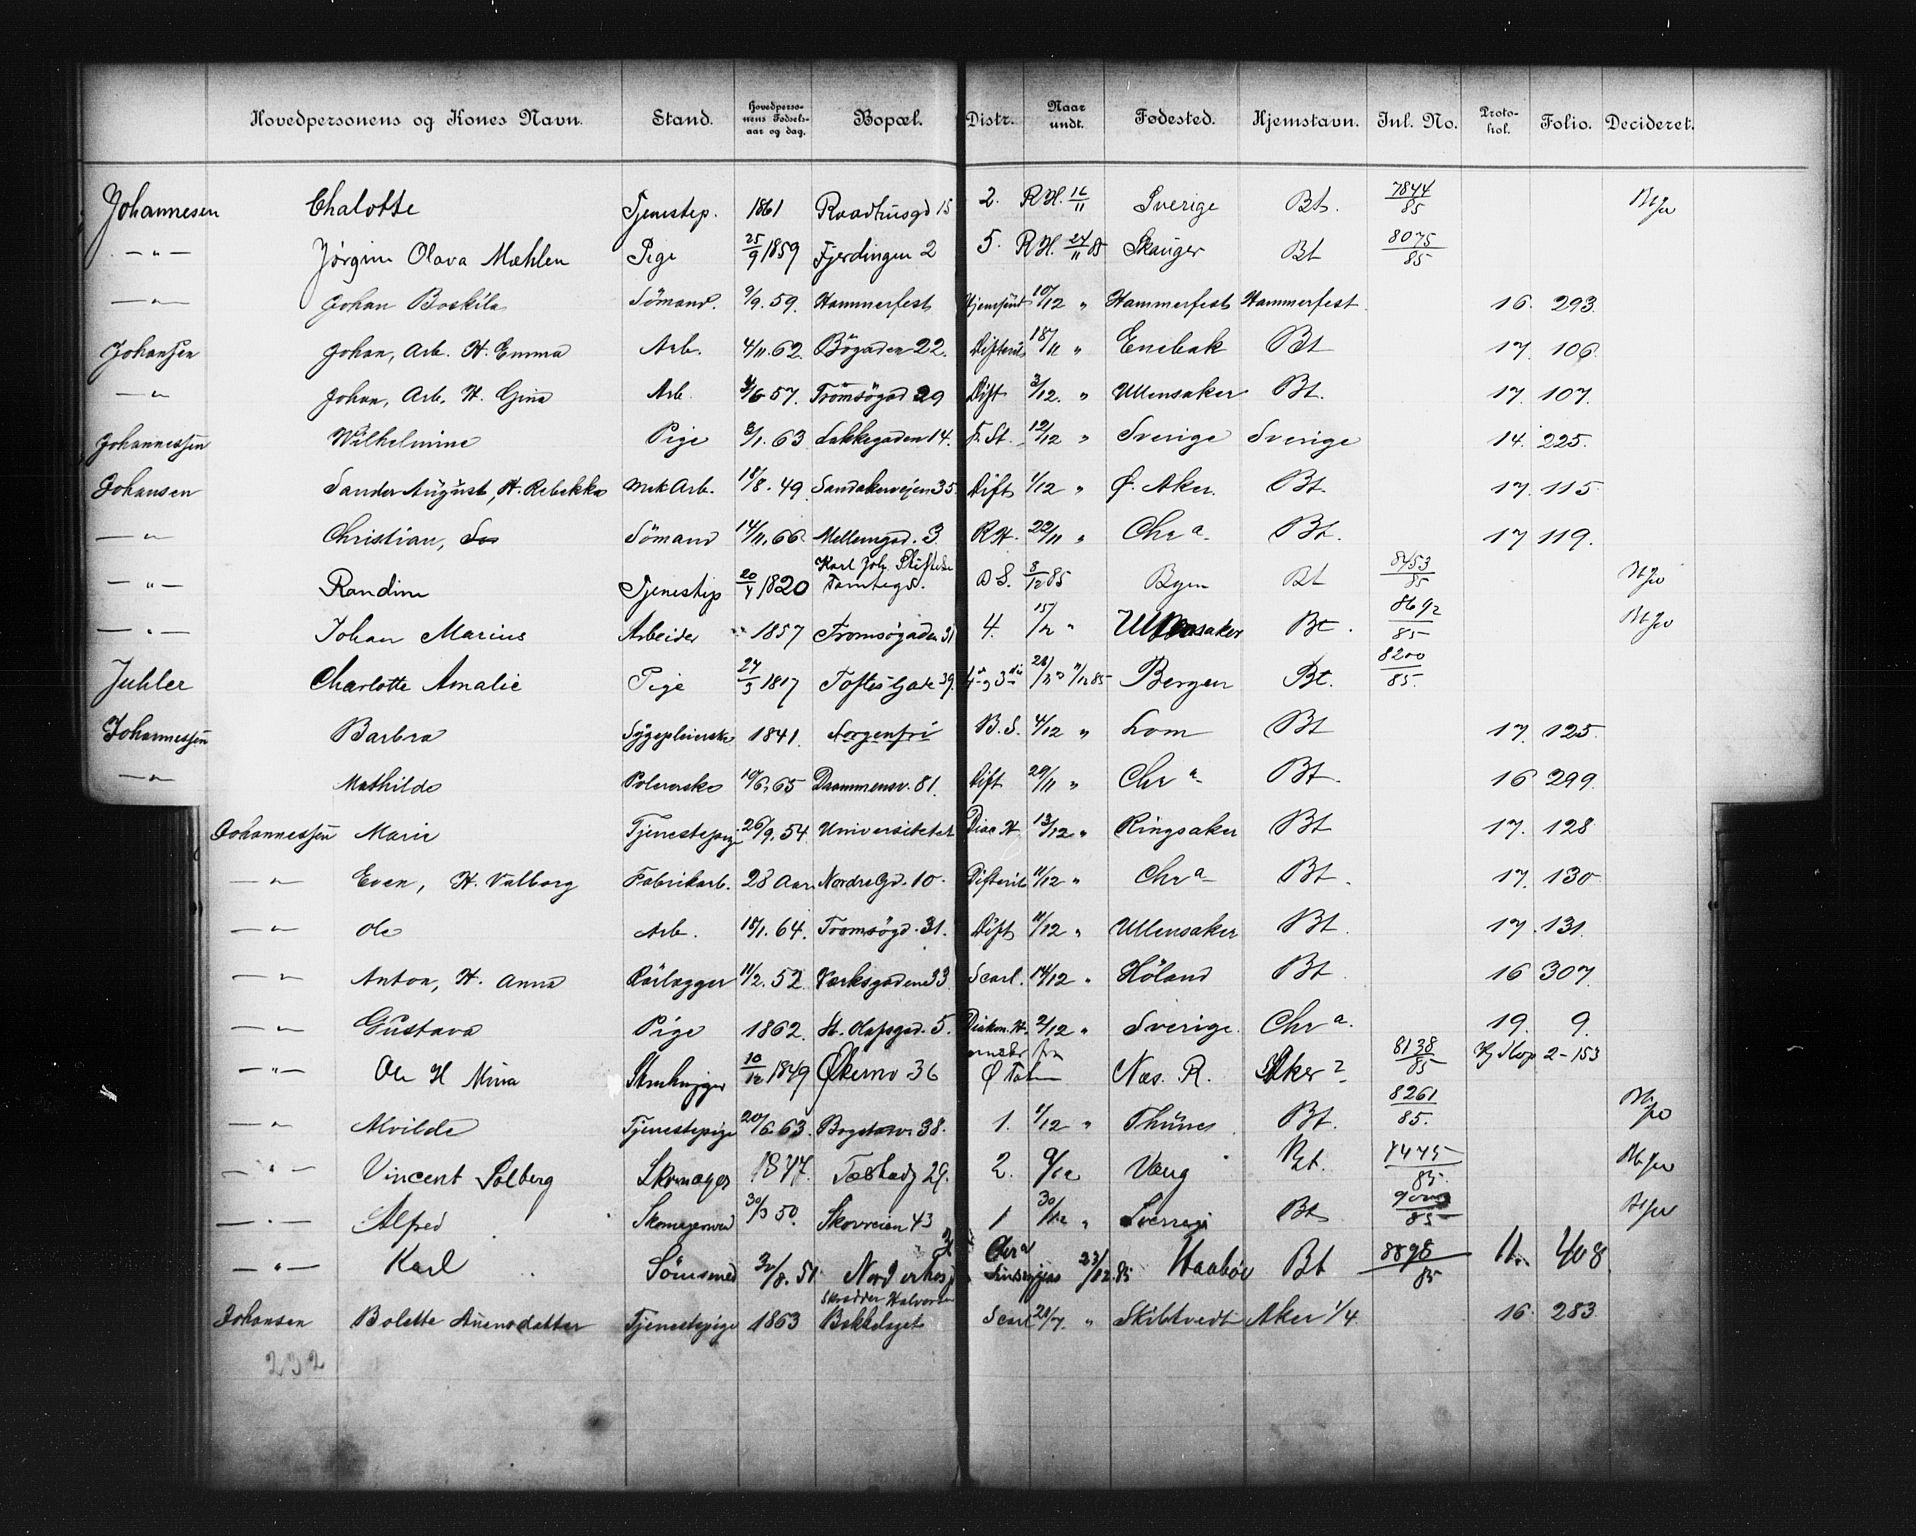 Hovedpersonens og Kones Navn. Stand. Hovedpersonens Fødselsaar og dag. Bopæl. Distr. Naar undt. Fødested. Hjemstavn. Jnl. No. Protokol. Folio. Decideret.
Johannesen Chalotte Tjenestep. 1861 Raadhusgd 15 2. R.H. 16/11 Sverige Bt. 7844/85
—"— Jørgine Olava Mæhlen Pige 25/9 1859 Fjerdingen 2 5. R.H. 24/11 85 Skauger Bt 8075/85
—"— Johan Boskila Sømand. 9/9. 59. Hammerfest 10/12 " Hammerfest Hammerfest 16. 293.
Johansen Johan, Arb. H. Emma Arb. 4/11. 62. Bögaden 22. Difterit 18/11 " Enebak Bt 17. 106.
—"— Johan, Arb. H. Gina Arb. 57. Tromsögad 29 Dift 3/12. " Ullensaker Bt. 17. 107.
Johannessen Wilhelmine Pige 8/1. 63 Lakkegaden 14. F. St. 12/12 " Sverige Sverige 14. 225.
Johansen Sander August, H. Rebekka Mek Arb. 18/8. 49. Sandakerveien 35. Dift 1/12 " Ø. Aker. Bt. 17. 115
—"— Christian, Sömand 14/11. 66. Mellemgad. 3 R.H. 22/11 " Chr a. Bt. 17 119.
Karl Joh. Stiftelse
—"— Randine Tjenestep 20/4 1820 Tomtegd. D S. 8/12 85 Byen Bt 8453/85
—"— Johan Marius Arbeider 1857 Tromsögaden 31 4. 15/12 " Ullensaker Bt. 8692/85
Juhler Charlotte Amalie Pige 27/3 1817 Toftes Gade 39. Bergen Bt. 8200/85.
Johannessen Barbra Sygepleierske 1841. Sorgenfri B.S. 4/12 " Lom Bt 17. 125.
—"— Mathilde Polererske 10/6. 65 Drammensv. 81. Dift 29/11 " Chr a Bt. 16 299.
Johannessen Marie Tjenestepige 26/9. 54. Universitetet Diac H 13/12 " Ringsaker Bt 17. 128
—"— Even, H. Valborg Fabrikarb. 28 Aar. Nordre Gd. 10. Difterit 11/12 " Chr a Bt. 17. 130
—"— Ole Arb. 18/1. 64. Tromsögd. 31. Dift 11/12 " Ullensaker Bt. 17. 131.
—"— Anton, H. Anna Rörlægger 11/2. 52. Værksgadene 33. Scarl. 14/12 " Höland Bt 16 307.
—"— Gustava Pige 1862. St. Olafsgad. 5. Diakon. H. 2/12 " Sverige. Chr a. 19. 9.
—"— Ole H Mina Stenhugger 10/12 1849 Økernv 36 fra Nes. R. Aker? 8138/85 2-153
—"— Alvilde Tjenestepige 20/6. 63. Bogstadv. 38. 1. 1/12 " Bt. 8261/85.
—"— Vincent Solberg Skomager 1847. 29. 2. 9/12 Vang Bt. 8445/85.
—"— Alfred Skomagersvend 30/3 50. Skovveien 43 1 30/12 " Bt
—"— Karl Sömand 8. 51. Chr a 23/12. 85 Haabøe Bt 8898/85 11. 408
Skrædder Halvorsen
Johansen Bolette Auensdatter Tjenestepige 1863 Bækkelaget Scarl 28/7. " Skibtvedt Aker 1/4 16. 283.
232